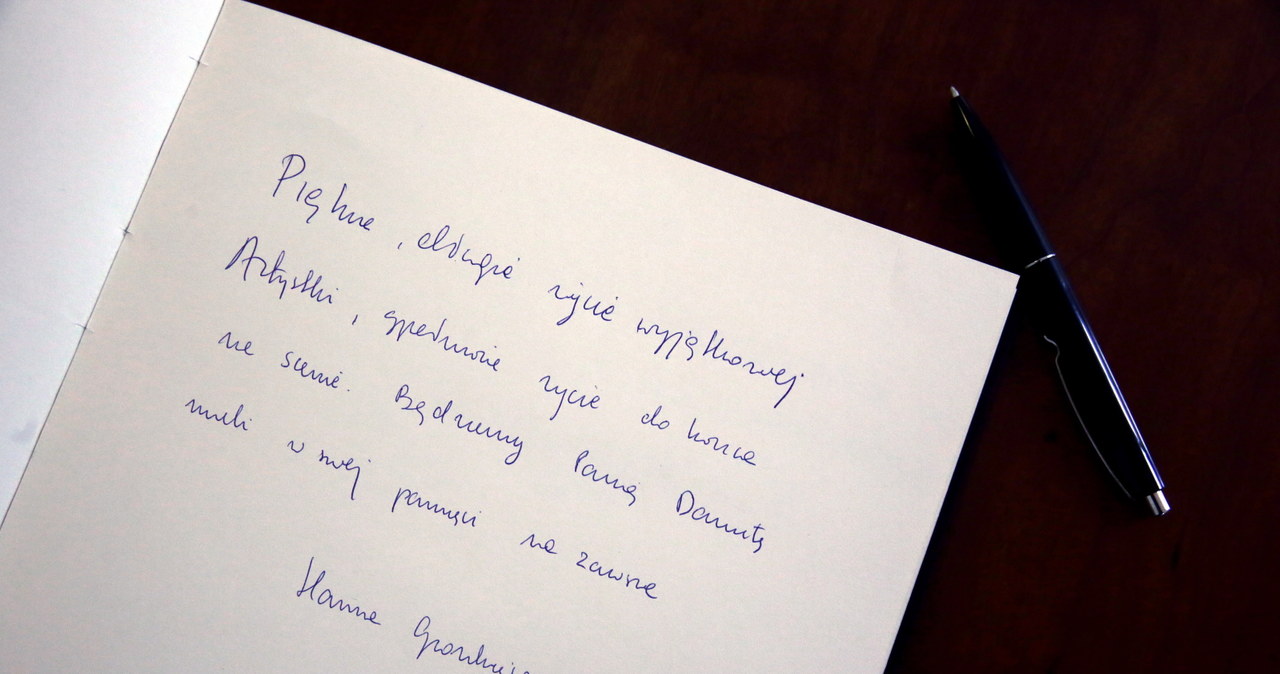 Piękne, długie życie wyjątkowej
Artystki, spełnione życie do końca
na scenie. Będziemy Panią Danutę
mieli w swej pamięci na zawsze
Hanna